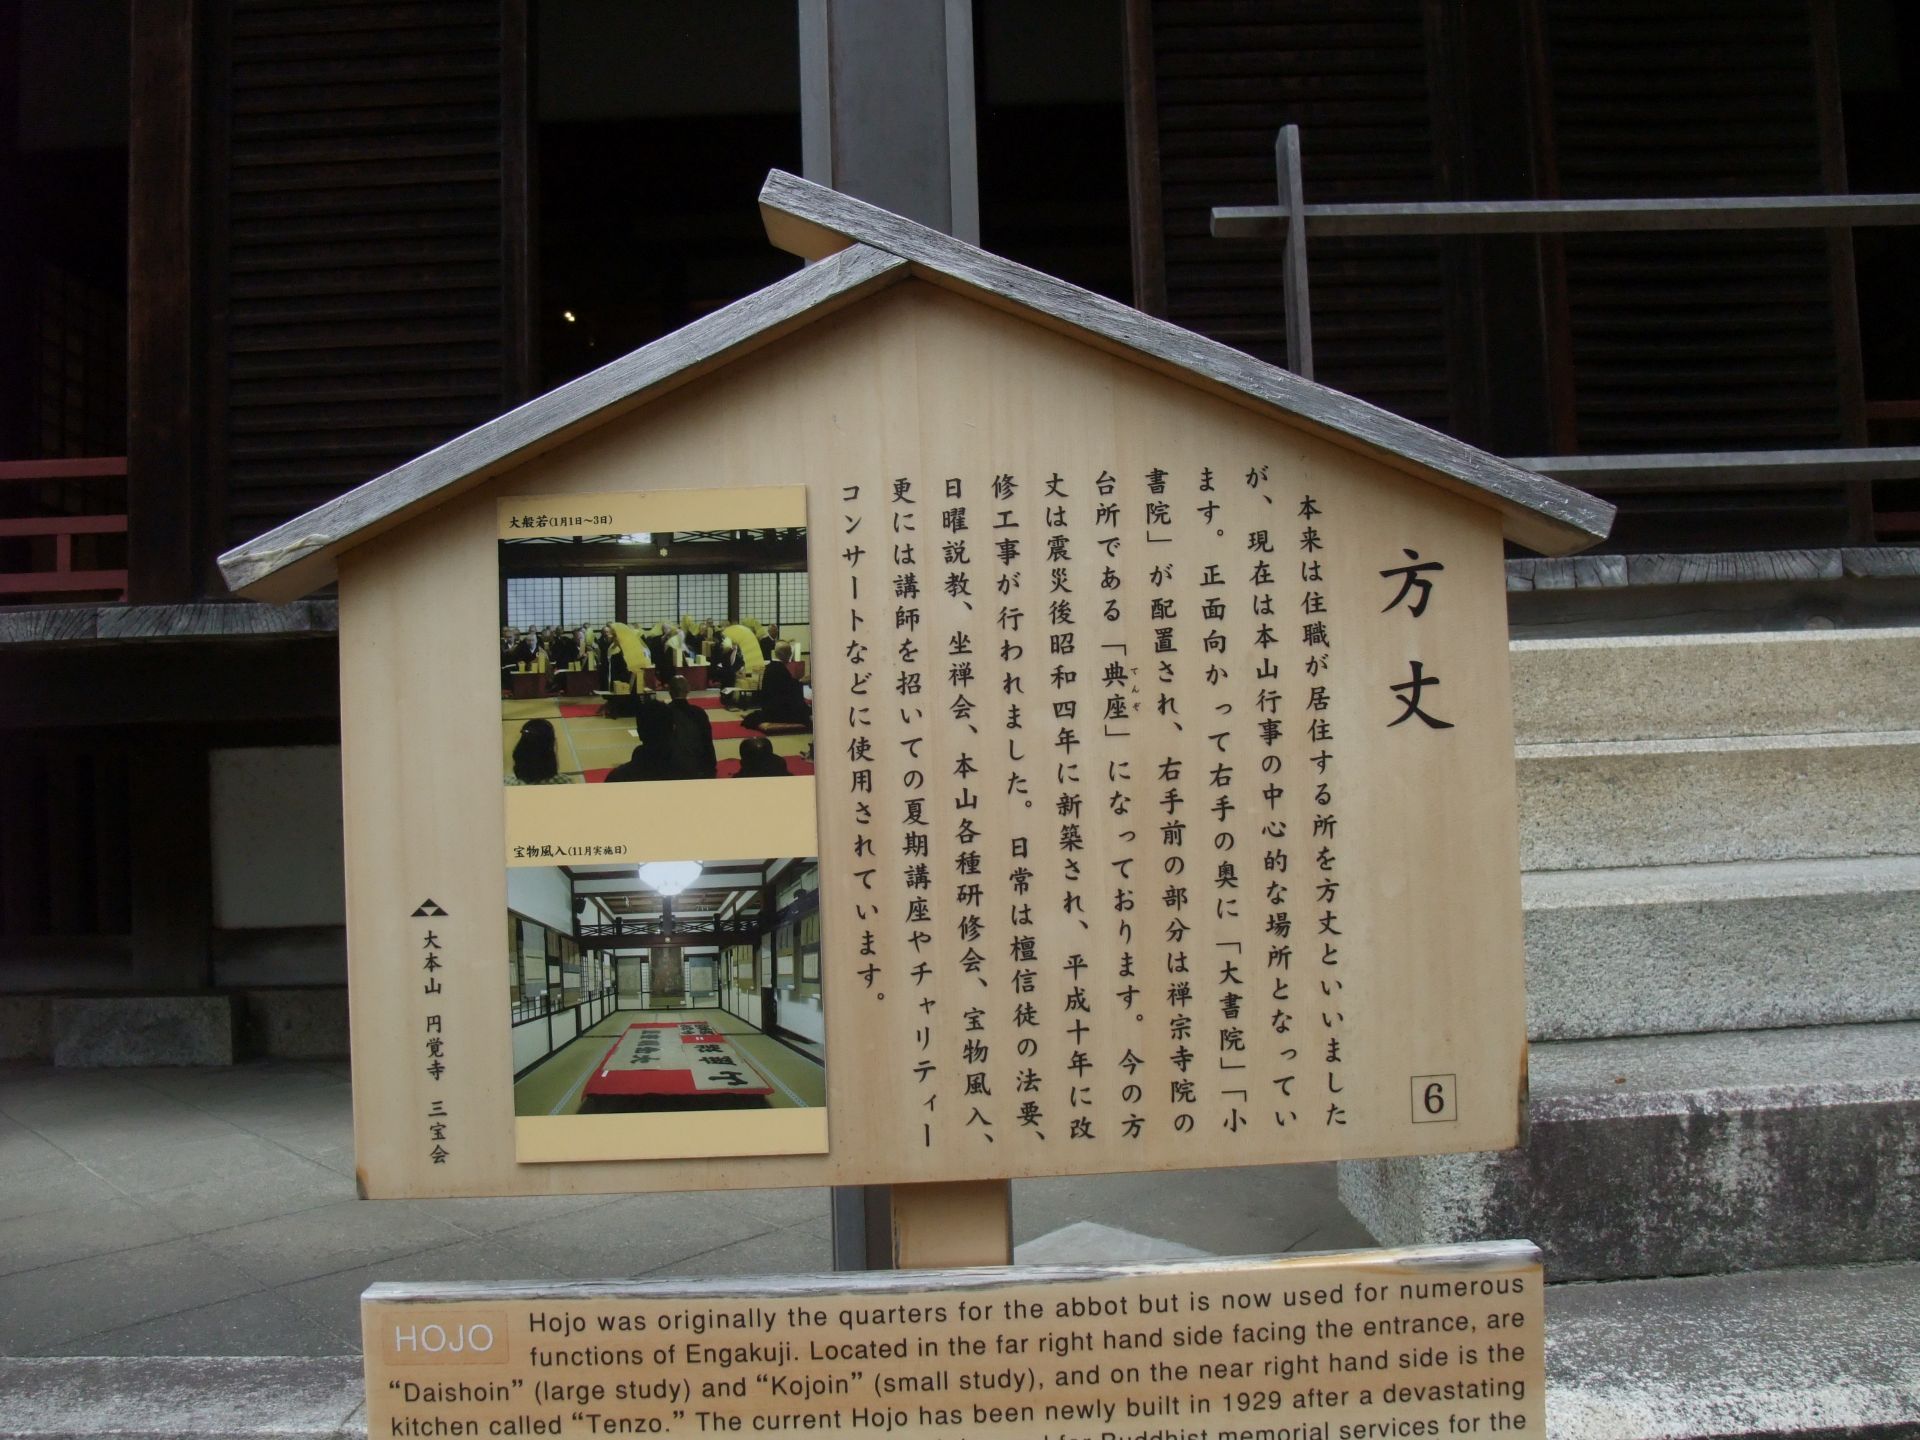 方丈
6
本来は住職が居住する所を方丈といいました
が、現在は本山行事の中心的な場所となってい
ます。正面向かって右手の奥に「大書院」「小
書院」が配置され、右手前の部分は禅宗寺院の
台所である「典座」になっております。今の方
てんぞ
丈は震災後昭和四年に新築され、平成十年に改
修工事が行われました。日常は檀信徒の法要、
日曜説教、坐禅会、本山各種研修会、宝物風入、
更には講師を招いての夏期講座やチャリティー
コンサートなどに使用されています。
大般若(1月1日〜3日)
宝物風入(11月実施日)
大本山 円覚寺 三宝会
HOJO
Hojo was originally the quarters for the abbot but is now used for numerous
functions of Engakuji. Located in the far right hand side facing the entrance, are
“Daishoin” (large study) and “Kojoin” (small study), and on the near right hand side is the
kitchen called “Tenzo.” The current Hojo has been newly built in 1929 after a devastating
for Buddhist memorial services for the